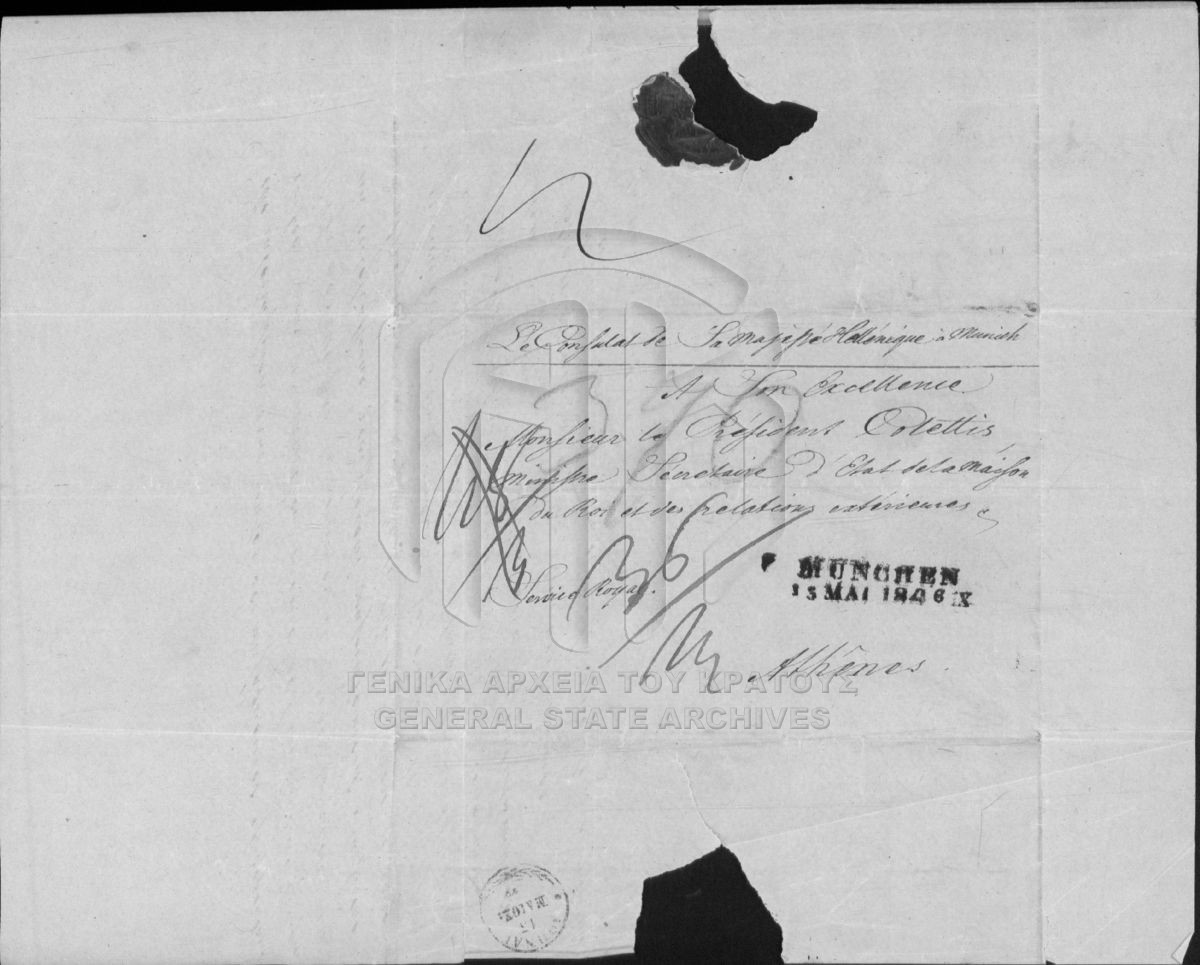 Le Consulat de Sa Majesté Hellénique à Munich
A Son Excellence
Monsieur le Président Colettis
Ministre Secrétaire d'Etat de la Maison
du Roi et des Relations extérieures
Service Royal.
MÜNCHEN
13 MAI 1846 IX
Athênes.
ΓΕΝΙΚΑ ΑΡΧΕΙΑ ΤΟΥ ΚΡΑΤΟΥΣ
GENERAL STATE ARCHIVES